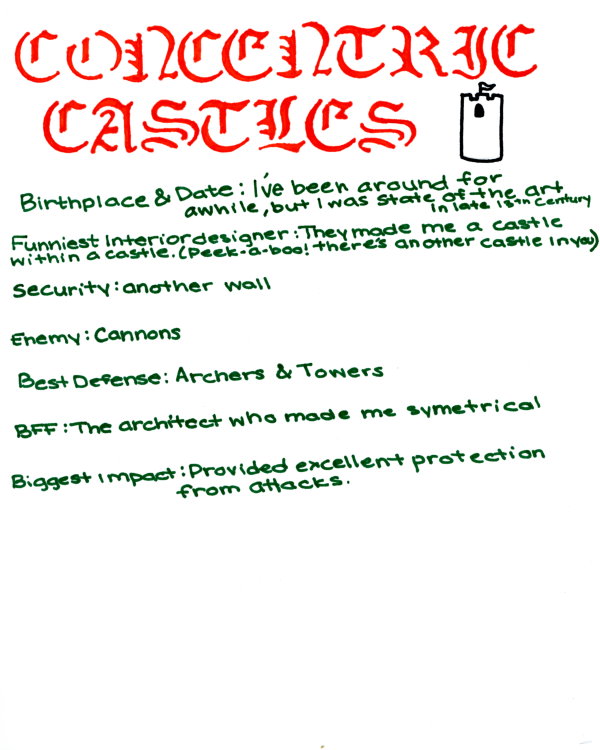 CONCENTRIC
CASTLES
Birthplace & Date: I've been around for
awhile, but I was state of the art
in late 13th century
Funniest Interior designer: They made me a castle
within a castle. (Peek-a-boo! there's another castle in you)
Security: another wall
Enemy: Cannons
Best Defense: Archers & Towers
BFF: The architect who made me symetrical
Biggest Impact: Provided excellent protection
from attacks.